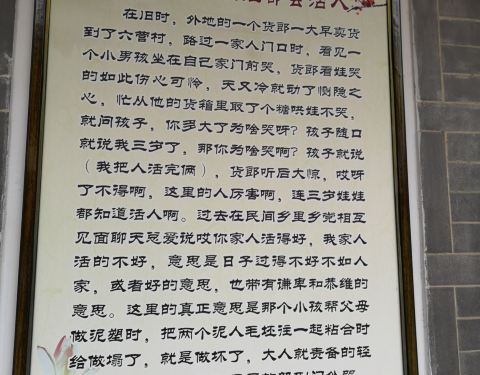 都会活人
在旧时，外地的一个货郎一大早卖货
到了六营村，路过一家人门口时，看见一
个小男孩坐在自己家门前哭，货郎看娃哭
的如此伤心可怜，天又冷就动了恻隐之
心，忙从他的货箱里取了个糖哄娃不哭，
就问孩子，你多大了为啥哭呀？孩子随口
就说我三岁了，那你为啥哭啊？孩子就说
（我把人活完俩），货郎听后大惊，哎呀
了不得啊，这里的人厉害啊，连三岁娃娃
都知道活人啊。过去在民间乡里乡党相互
见面聊天总爱说哎你家人活得好，我家人
活的不好，意思是日子过得不好不如人
家，或者好的意思，也带有谦卑和恭维的
意思。这里的真正意思是那个小孩帮父母
做泥塑时，把两个泥人毛坯往一起粘合时
给做塌了，就是做坏了，大人就责备的轻